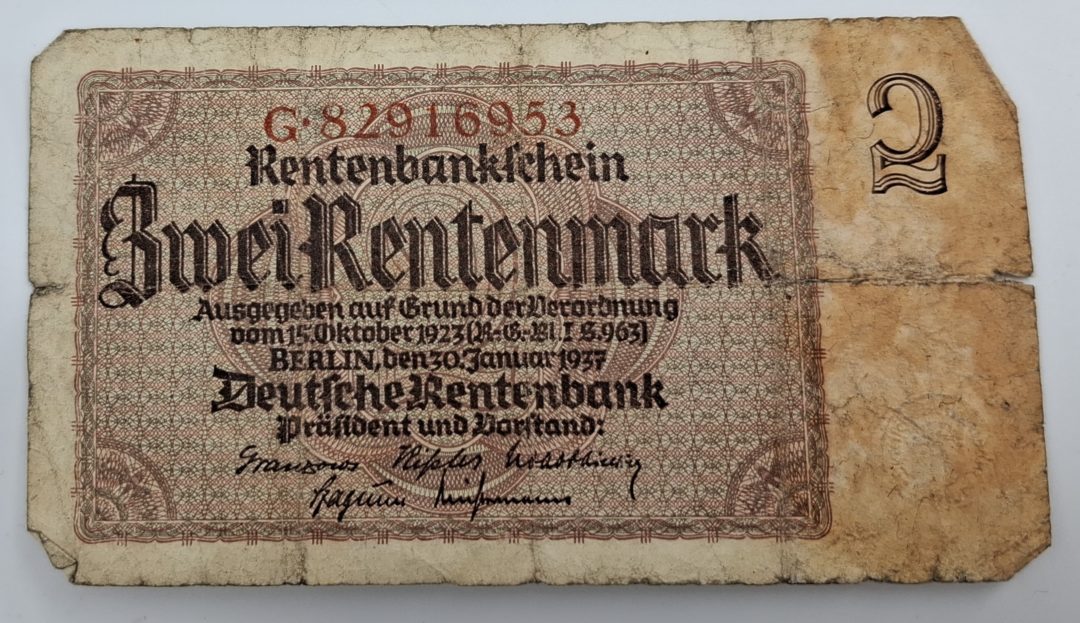 G·82916953
2
Rentenbankschein
Zwei Rentenmark
Ausgegeben auf Grund der Verordnung
vom 15. Oktober 1923 (R.-G.-Bl. I S. 963)
BERLIN, den 30. Januar 1937
Deutsche Rentenbank
Präsident und Vorstand: